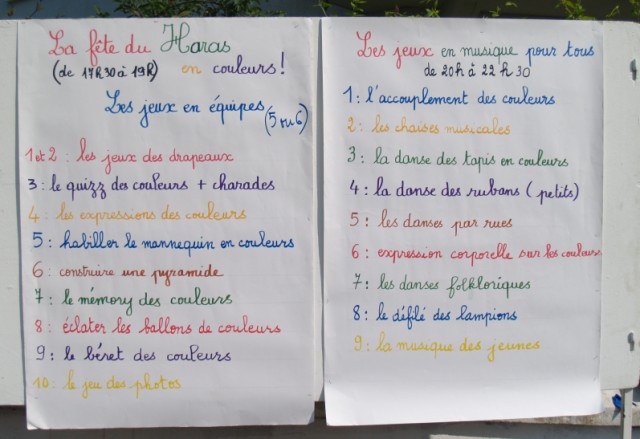 La fête du Haras
(de 17h30 à 19h) en couleurs!
Les jeux en équipes
(5 ou 6)
1 et 2 : les jeux des drapeaux
3 : le quizz des couleurs + charades
4 : les expressions des couleurs
5 : habiller le mannequin en couleurs
6 : construire une pyramide
7 : le mémory des couleurs
8 : éclater les ballons de couleurs
9 : le béret des couleurs
10 : le jeu des photos
Les jeux en musique pour tous
de 20h à 22h30
1 : l'accouplement des couleurs
2 : les chaises musicales
3 : la danse des tapis en couleurs
4 : la danse des rubans (petits)
5 : les danses par rues
6 : expression corporelle sur les couleurs
7 : les danses folkloriques
8 : le défilé des lampions
9 : la musique des jeunes